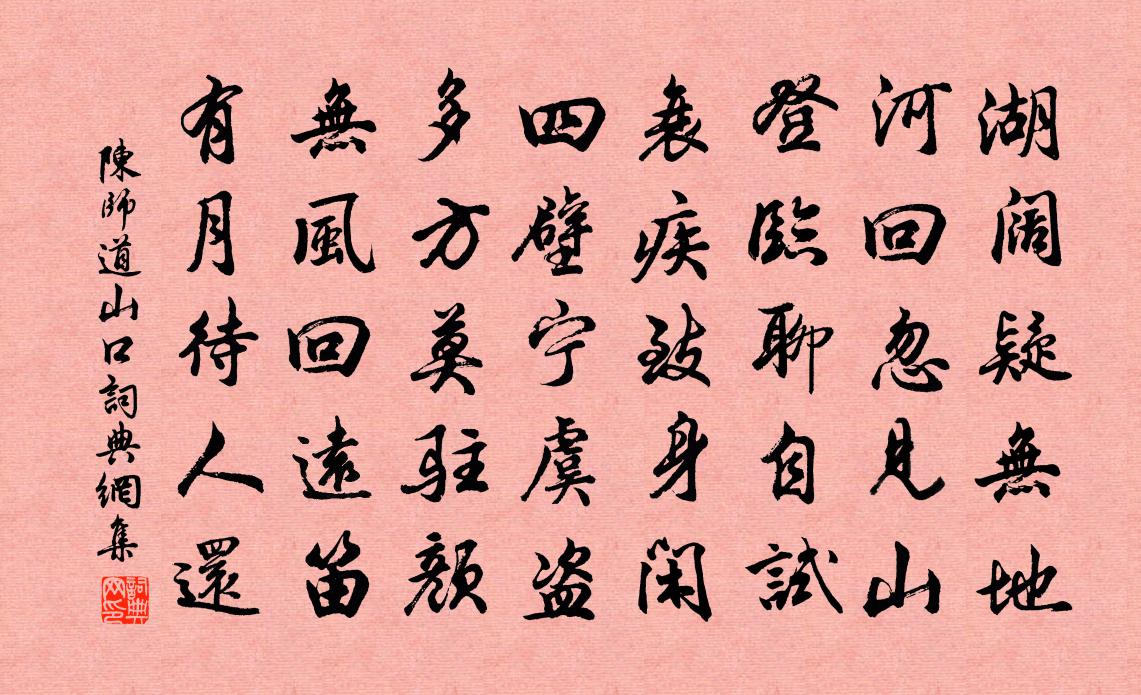 湖阔疑無地
河回忽見山
登臨聊自試
衰疾致身閑
四壁宁虞盗
多方莫駐顔
無風回遠笛
有月待人還
陳師道山口詞典網集
詞典網印